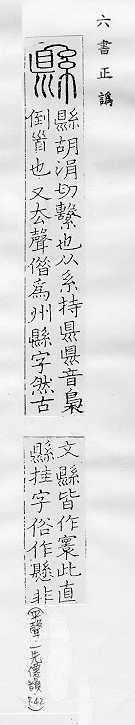 六書正譌
縣
縣胡涓切繫也从系持県県音梟
倒首也又去聲借爲州縣字然古
文縣皆作寰此直
縣挂字俗作懸非
平聲二先僊韻 P.42